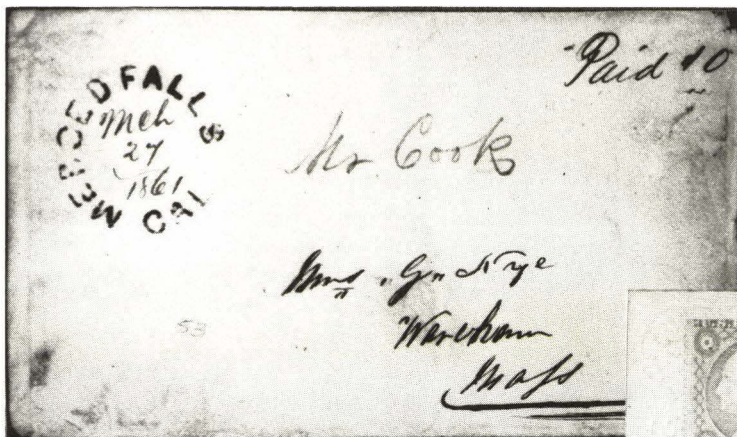 MERCED FALLS CAL
Mch
27
1861
Paid 10
Mr Cook
Mrs "G" Nye
Wareham
Mass
53